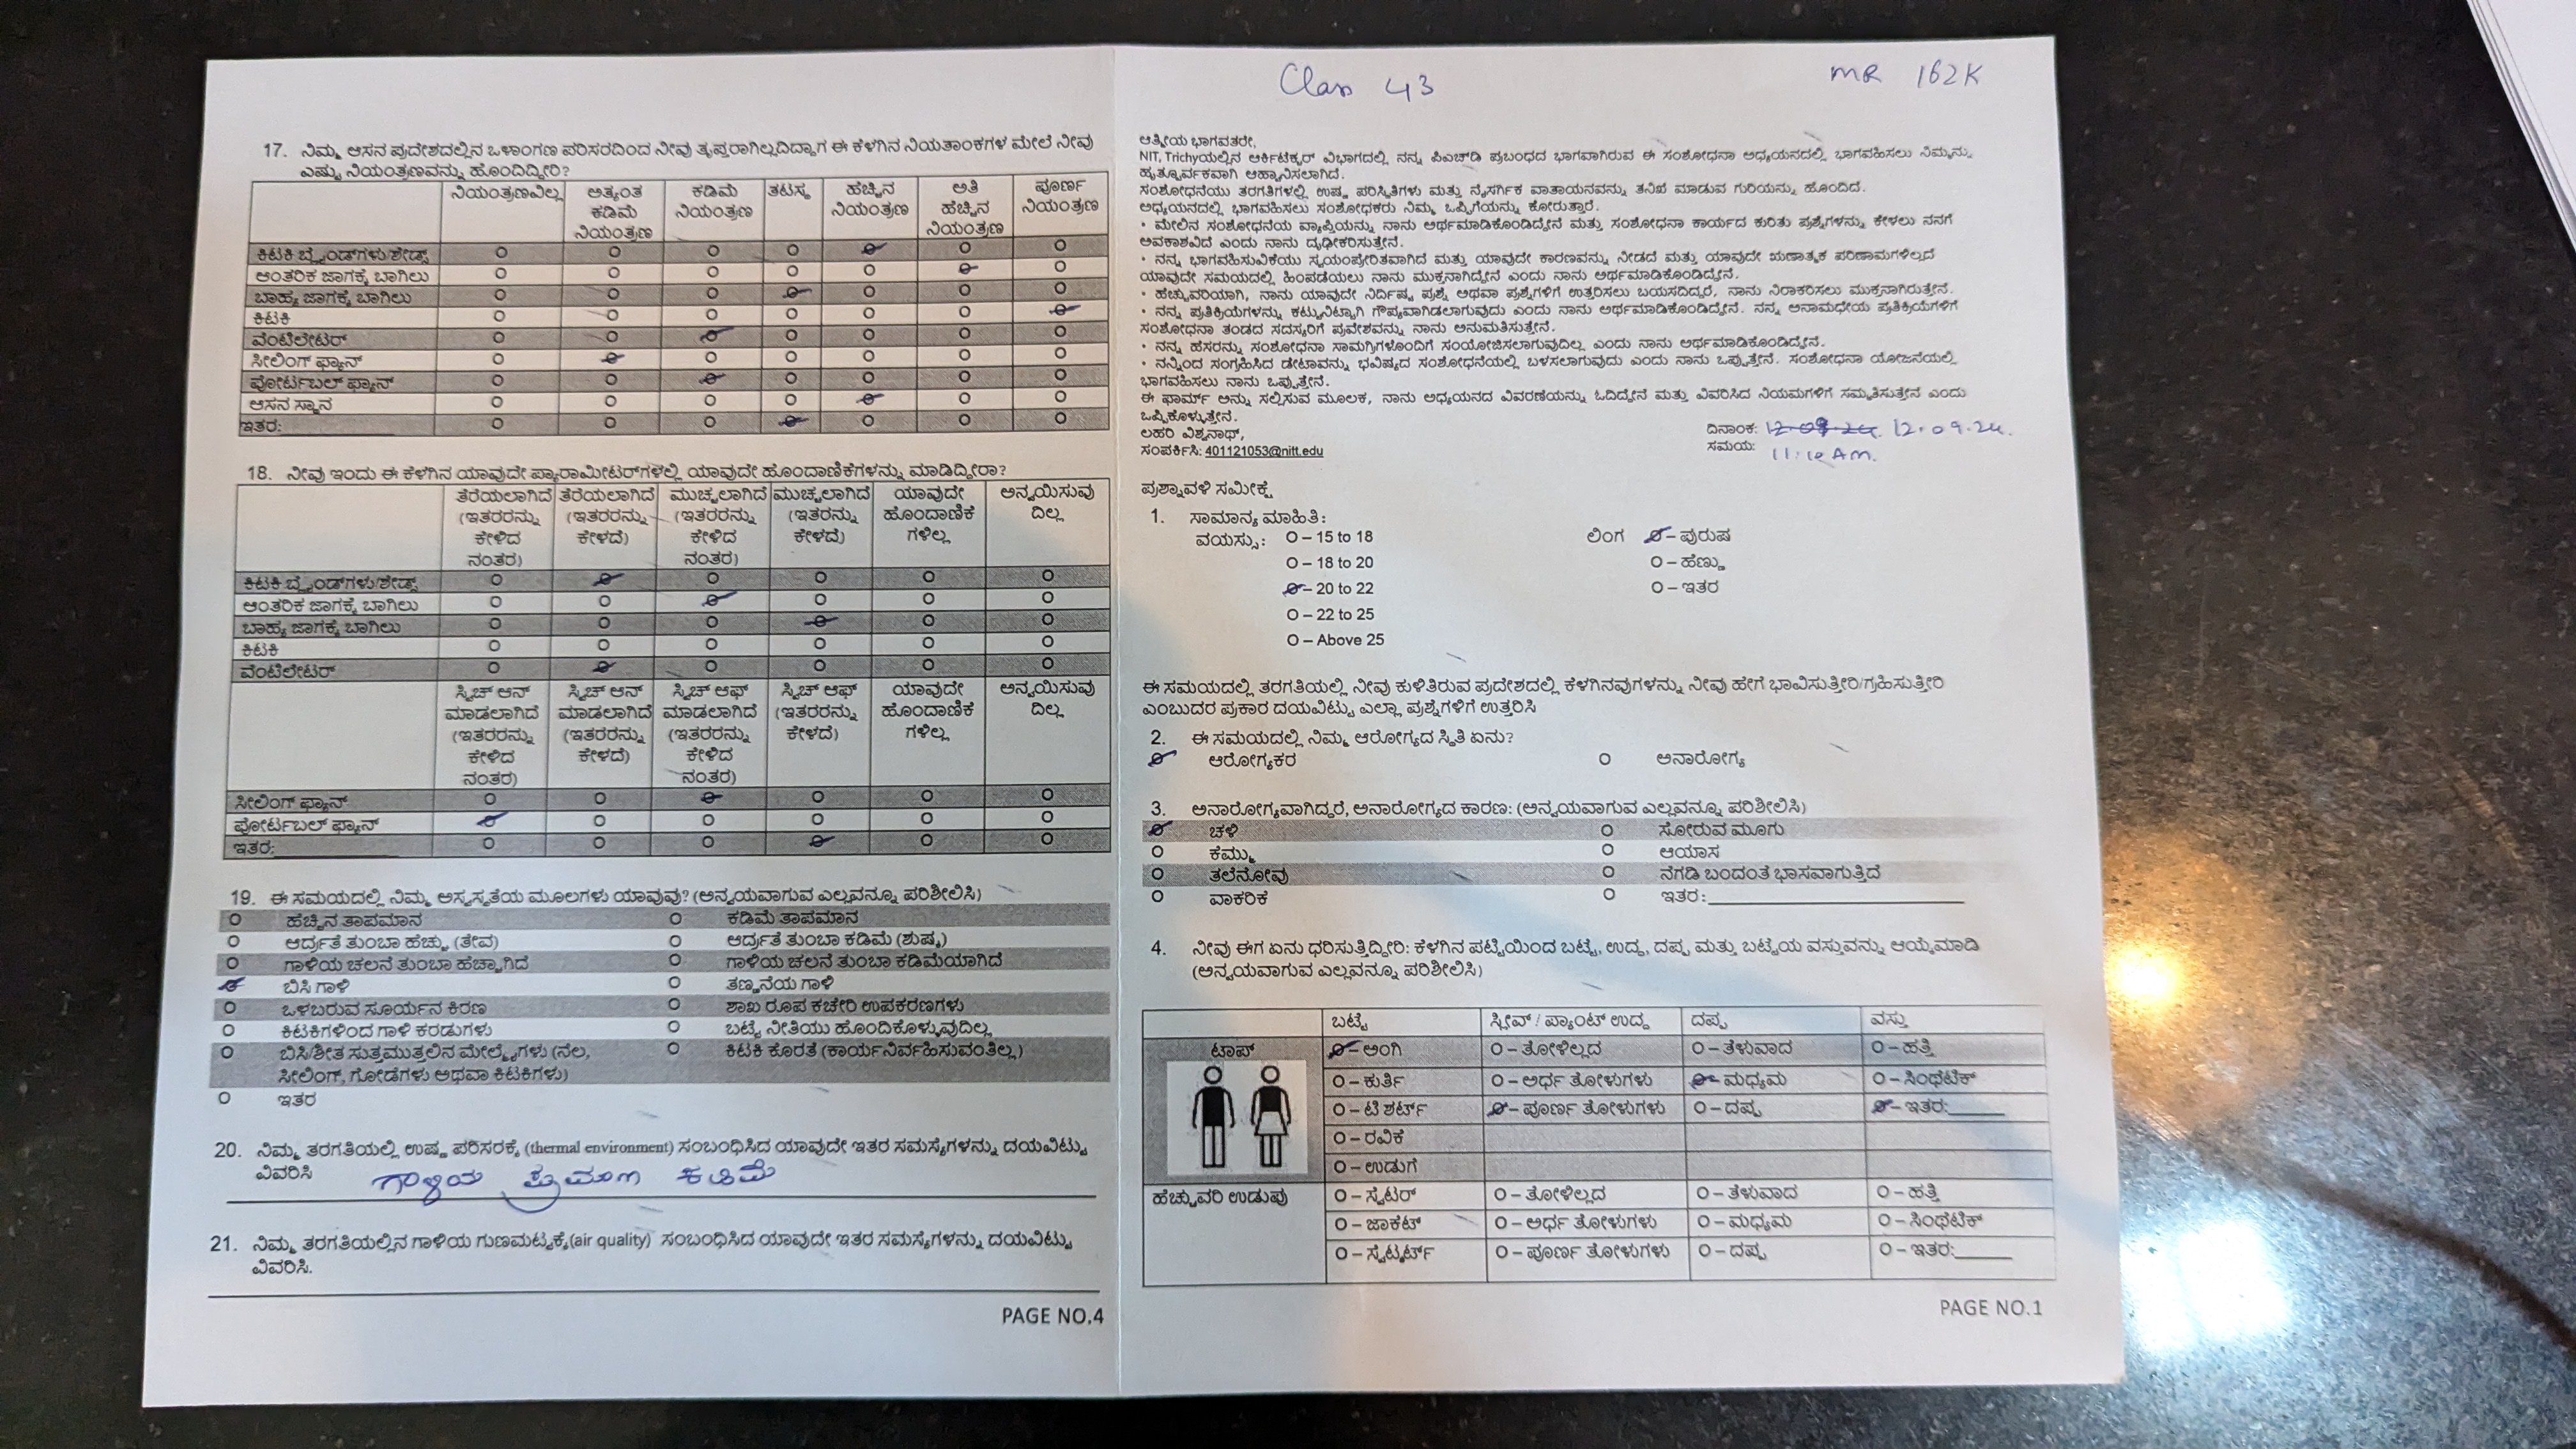 17. ನಿಮ್ಮ ಆಸನ ಪ್ರದೇಶದಲ್ಲಿನ ಒಳಾಂಗಣ ಪರಿಸರದಿಂದ ನೀವು ತೃಪ್ತರಾಗಿಲ್ಲದಿದ್ದಾಗ ಈ ಕೆಳಗಿನ ನಿಯತಾಂಕಗಳ ಮೇಲೆ ನೀವು
ಎಷ್ಟು ನಿಯಂತ್ರಣವನ್ನು ಹೊಂದಿದ್ದೀರಿ?
ನಿಯಂತ್ರಣವಿಲ್ಲ ಅತ್ಯಂತ ಕಡಿಮೆ ನಿಯಂತ್ರಣ ಕಡಿಮೆ ನಿಯಂತ್ರಣ ತಟಸ್ಥ ಹೆಚ್ಚಿನ ನಿಯಂತ್ರಣ ಅತಿ ಹೆಚ್ಚಿನ ನಿಯಂತ್ರಣ ಪೂರ್ಣ ನಿಯಂತ್ರಣ
ಕಿಟಕಿ ಬ್ಲೈಂಡ್‌ಗಳು/ಶೇಡ್ಸ್
ಆಂತರಿಕ ಜಾಗಕ್ಕೆ ಬಾಗಿಲು
ಬಾಹ್ಯ ಜಾಗಕ್ಕೆ ಬಾಗಿಲು
ಕಿಟಕಿ
ವೆಂಟಿಲೇಟರ್
ಸೀಲಿಂಗ್ ಫ್ಯಾನ್
ಪೋರ್ಟಬಲ್ ಫ್ಯಾನ್
ಆಸನ ಸ್ಥಾನ
ಇತರ:
18. ನೀವು ಇಂದು ಈ ಕೆಳಗಿನ ಯಾವುದೇ ಪ್ಯಾರಾಮೀಟರ್‌ಗಳಲ್ಲಿ ಯಾವುದೇ ಹೊಂದಾಣಿಕೆಗಳನ್ನು ಮಾಡಿದ್ದೀರಾ?
ತೆರೆಯಲಾಗಿದೆ (ಇತರರನ್ನು ಕೇಳಿದ ನಂತರ) ತೆರೆಯಲಾಗಿದೆ (ಇತರರನ್ನು ಕೇಳದೆ) ಮುಚ್ಚಲಾಗಿದೆ (ಇತರರನ್ನು ಕೇಳಿದ ನಂತರ) ಮುಚ್ಚಲಾಗಿದೆ (ಇತರನ್ನು ಕೇಳದೆ) ಯಾವುದೇ ಹೊಂದಾಣಿಕೆ ಗಳಿಲ್ಲ ಅನ್ವಯಿಸುವು ದಿಲ್ಲ
ಕಿಟಕಿ ಬ್ಲೈಂಡ್‌ಗಳು/ಶೇಡ್ಸ್
ಆಂತರಿಕ ಜಾಗಕ್ಕೆ ಬಾಗಿಲು
ಬಾಹ್ಯ ಜಾಗಕ್ಕೆ ಬಾಗಿಲು
ಕಿಟಕಿ
ವೆಂಟಿಲೇಟರ್
ಸ್ವಿಚ್ ಆನ್ ಮಾಡಲಾಗಿದೆ (ಇತರರನ್ನು ಕೇಳಿದ ನಂತರ) ಸ್ವಿಚ್ ಆನ್ ಮಾಡಲಾಗಿದೆ (ಇತರರನ್ನು ಕೇಳದೆ) ಸ್ವಿಚ್ ಆಫ್ ಮಾಡಲಾಗಿದೆ (ಇತರರನ್ನು ಕೇಳಿದ ನಂತರ) ಸ್ವಿಚ್ ಆಫ್ (ಇತರರನ್ನು ಕೇಳದೆ) ಯಾವುದೇ ಹೊಂದಾಣಿಕೆ ಗಳಿಲ್ಲ ಅನ್ವಯಿಸುವು ದಿಲ್ಲ
ಸೀಲಿಂಗ್ ಫ್ಯಾನ್
ಪೋರ್ಟಬಲ್ ಫ್ಯಾನ್
ಇತರ:
19. ಈ ಸಮಯದಲ್ಲಿ ನಿಮ್ಮ ಅಸ್ವಸ್ಥತೆಯ ಮೂಲಗಳು ಯಾವುವು? (ಅನ್ವಯವಾಗುವ ಎಲ್ಲವನ್ನೂ ಪರಿಶೀಲಿಸಿ)
ಹೆಚ್ಚಿನ ತಾಪಮಾನ ಕಡಿಮೆ ತಾಪಮಾನ
ಆರ್ದ್ರತೆ ತುಂಬಾ ಹೆಚ್ಚು (ತೇವ) ಆರ್ದ್ರತೆ ತುಂಬಾ ಕಡಿಮೆ (ಶುಷ್ಕ)
ಗಾಳಿಯ ಚಲನೆ ತುಂಬಾ ಹೆಚ್ಚಾಗಿದೆ ಗಾಳಿಯ ಚಲನೆ ತುಂಬಾ ಕಡಿಮೆಯಾಗಿದೆ
ಬಿಸಿ ಗಾಳಿ ತಣ್ಣನೆಯ ಗಾಳಿ
ಒಳಬರುವ ಸೂರ್ಯನ ಕಿರಣ ಶಾಖ ರೂಪ ಕಚೇರಿ ಉಪಕರಣಗಳು
ಕಿಟಕಿಗಳಿಂದ ಗಾಳಿ ಕರಡುಗಳು ಬಟ್ಟೆ ನೀತಿಯು ಹೊಂದಿಕೊಳ್ಳುವುದಿಲ್ಲ
ಬಿಸಿ/ಶೀತ ಸುತ್ತಮುತ್ತಲಿನ ಮೇಲ್ಮೈಗಳು (ನೆಲ, ಕಿಟಕಿ ಕೊರತೆ (ಕಾರ್ಯನಿರ್ವಹಿಸುವಂತಿಲ್ಲ)
ಸೀಲಿಂಗ್, ಗೋಡೆಗಳು ಅಥವಾ ಕಿಟಕಿಗಳು)
ಇತರ
20. ನಿಮ್ಮ ತರಗತಿಯಲ್ಲಿ ಉಷ್ಣ ಪರಿಸರಕ್ಕೆ (thermal environment) ಸಂಬಂಧಿಸಿದ ಯಾವುದೇ ಇತರ ಸಮಸ್ಯೆಗಳನ್ನು ದಯವಿಟ್ಟು
ವಿವರಿಸಿ ಗಾಳಿಯ ಪ್ರಮಾಣ ಕಡಿಮೆ
21. ನಿಮ್ಮ ತರಗತಿಯಲ್ಲಿನ ಗಾಳಿಯ ಗುಣಮಟ್ಟಕ್ಕೆ(air quality) ಸಂಬಂಧಿಸಿದ ಯಾವುದೇ ಇತರ ಸಮಸ್ಯೆಗಳನ್ನು ದಯವಿಟ್ಟು
ವಿವರಿಸಿ.
PAGE NO.4
Class 43 MR 162K
ಆತ್ಮೀಯ ಭಾಗವತರೇ,
NIT, Trichyಯಲ್ಲಿನ ಆರ್ಕಿಟೆಕ್ಚರ್ ವಿಭಾಗದಲ್ಲಿ ನನ್ನ ಪಿಎಚ್‌ಡಿ ಪ್ರಬಂಧದ ಭಾಗವಾಗಿರುವ ಈ ಸಂಶೋಧನಾ ಅಧ್ಯಯನದಲ್ಲಿ ಭಾಗವಹಿಸಲು ನಿಮ್ಮನ್ನು
ಹೃತ್ಪೂರ್ವಕವಾಗಿ ಆಹ್ವಾನಿಸಲಾಗಿದೆ.
ಸಂಶೋಧನೆಯು ತರಗತಿಗಳಲ್ಲಿ ಉಷ್ಣ ಪರಿಸ್ಥಿತಿಗಳು ಮತ್ತು ನೈಸರ್ಗಿಕ ವಾತಾಯನವನ್ನು ತನಿಖೆ ಮಾಡುವ ಗುರಿಯನ್ನು ಹೊಂದಿದೆ.
ಅಧ್ಯಯನದಲ್ಲಿ ಭಾಗವಹಿಸಲು ಸಂಶೋಧಕರು ನಿಮ್ಮ ಒಪ್ಪಿಗೆಯನ್ನು ಕೋರುತ್ತಾರೆ.
• ಮೇಲಿನ ಸಂಶೋಧನೆಯ ವ್ಯಾಪ್ತಿಯನ್ನು ನಾನು ಅರ್ಥಮಾಡಿಕೊಂಡಿದ್ದೇನೆ ಮತ್ತು ಸಂಶೋಧನಾ ಕಾರ್ಯದ ಕುರಿತು ಪ್ರಶ್ನೆಗಳನ್ನು ಕೇಳಲು ನನಗೆ
ಅವಕಾಶವಿದೆ ಎಂದು ನಾನು ದೃಢೀಕರಿಸುತ್ತೇನೆ.
• ನನ್ನ ಭಾಗವಹಿಸುವಿಕೆಯು ಸ್ವಯಂಪ್ರೇರಿತವಾಗಿದೆ ಮತ್ತು ಯಾವುದೇ ಕಾರಣವನ್ನು ನೀಡದೆ ಮತ್ತು ಯಾವುದೇ ಋಣಾತ್ಮಕ ಪರಿಣಾಮಗಳಿಲ್ಲದೆ
ಯಾವುದೇ ಸಮಯದಲ್ಲಿ ಹಿಂಪಡೆಯಲು ನಾನು ಮುಕ್ತನಾಗಿದ್ದೇನೆ ಎಂದು ನಾನು ಅರ್ಥಮಾಡಿಕೊಂಡಿದ್ದೇನೆ.
• ಹೆಚ್ಚುವರಿಯಾಗಿ, ನಾನು ಯಾವುದೇ ನಿರ್ದಿಷ್ಟ ಪ್ರಶ್ನೆ ಅಥವಾ ಪ್ರಶ್ನೆಗಳಿಗೆ ಉತ್ತರಿಸಲು ಬಯಸದಿದ್ದರೆ, ನಾನು ನಿರಾಕರಿಸಲು ಮುಕ್ತನಾಗಿರುತ್ತೇನೆ.
• ನನ್ನ ಪ್ರತಿಕ್ರಿಯೆಗಳನ್ನು ಕಟ್ಟುನಿಟ್ಟಾಗಿ ಗೌಪ್ಯವಾಗಿಡಲಾಗುವುದು ಎಂದು ನಾನು ಅರ್ಥಮಾಡಿಕೊಂಡಿದ್ದೇನೆ. ನನ್ನ ಅನಾಮಧೇಯ ಪ್ರತಿಕ್ರಿಯೆಗಳಿಗೆ
ಸಂಶೋಧನಾ ತಂಡದ ಸದಸ್ಯರಿಗೆ ಪ್ರವೇಶವನ್ನು ನಾನು ಅನುಮತಿಸುತ್ತೇನೆ.
• ನನ್ನ ಹೆಸರನ್ನು ಸಂಶೋಧನಾ ಸಾಮಗ್ರಿಗಳೊಂದಿಗೆ ಸಂಯೋಜಿಸಲಾಗುವುದಿಲ್ಲ ಎಂದು ನಾನು ಅರ್ಥಮಾಡಿಕೊಂಡಿದ್ದೇನೆ.
• ನನ್ನಿಂದ ಸಂಗ್ರಹಿಸಿದ ಡೇಟಾವನ್ನು ಭವಿಷ್ಯದ ಸಂಶೋಧನೆಯಲ್ಲಿ ಬಳಸಲಾಗುವುದು ಎಂದು ನಾನು ಒಪ್ಪುತ್ತೇನೆ. ಸಂಶೋಧನಾ ಯೋಜನೆಯಲ್ಲಿ
ಭಾಗವಹಿಸಲು ನಾನು ಒಪ್ಪುತ್ತೇನೆ.
ಈ ಫಾರ್ಮ್ ಅನ್ನು ಸಲ್ಲಿಸುವ ಮೂಲಕ, ನಾನು ಅಧ್ಯಯನದ ವಿವರಣೆಯನ್ನು ಓದಿದ್ದೇನೆ ಮತ್ತು ವಿವರಿಸಿದ ನಿಯಮಗಳಿಗೆ ಸಮ್ಮತಿಸುತ್ತೇನೆ ಎಂದು
ಒಪ್ಪಿಕೊಳ್ಳುತ್ತೇನೆ.
ಲಹರಿ ವಿಶ್ವನಾಥ್, ದಿನಾಂಕ: 12.09.24. 12.09.24.
ಸಂಪರ್ಕಿಸಿ: 401121053@nitt.edu ಸಮಯ: 11:10 AM.
ಪ್ರಶ್ನಾವಳಿ ಸಮೀಕ್ಷೆ
1. ಸಾಮಾನ್ಯ ಮಾಹಿತಿ:
ವಯಸ್ಸು: O – 15 to 18 ಲಿಂಗ O – ಪುರುಷ
O – 18 to 20 O – ಹೆಣ್ಣು
O – 20 to 22 O – ಇತರ
O – 22 to 25
O – Above 25
ಈ ಸಮಯದಲ್ಲಿ ತರಗತಿಯಲ್ಲಿ ನೀವು ಕುಳಿತಿರುವ ಪ್ರದೇಶದಲ್ಲಿ ಕೆಳಗಿನವುಗಳನ್ನು ನೀವು ಹೇಗೆ ಭಾವಿಸುತ್ತೀರಿ/ಗ್ರಹಿಸುತ್ತೀರಿ
ಎಂಬುದರ ಪ್ರಕಾರ ದಯವಿಟ್ಟು ಎಲ್ಲಾ ಪ್ರಶ್ನೆಗಳಿಗೆ ಉತ್ತರಿಸಿ
2. ಈ ಸಮಯದಲ್ಲಿ ನಿಮ್ಮ ಆರೋಗ್ಯದ ಸ್ಥಿತಿ ಏನು?
ಆರೋಗ್ಯಕರ ಅನಾರೋಗ್ಯ
3. ಅನಾರೋಗ್ಯವಾಗಿದ್ದರೆ, ಅನಾರೋಗ್ಯದ ಕಾರಣ: (ಅನ್ವಯವಾಗುವ ಎಲ್ಲವನ್ನೂ ಪರಿಶೀಲಿಸಿ)
ಚಳಿ ಸೋರುವ ಮೂಗು
ಕೆಮ್ಮು ಆಯಾಸ
ತಲೆನೋವು ನೆಗಡಿ ಬಂದಂತೆ ಭಾಸವಾಗುತ್ತಿದೆ
ವಾಕರಿಕೆ ಇತರ:
4. ನೀವು ಈಗ ಏನು ಧರಿಸುತ್ತಿದ್ದೀರಿ: ಕೆಳಗಿನ ಪಟ್ಟಿಯಿಂದ ಬಟ್ಟೆ, ಉದ್ದ, ದಪ್ಪ ಮತ್ತು ಬಟ್ಟೆಯ ವಸ್ತುವನ್ನು ಆಯ್ಕೆಮಾಡಿ
(ಅನ್ವಯವಾಗುವ ಎಲ್ಲವನ್ನೂ ಪರಿಶೀಲಿಸಿ)
ಬಟ್ಟೆ ಸ್ಲೀವ್ / ಪ್ಯಾಂಟ್ ಉದ್ದ ದಪ್ಪ ವಸ್ತು
ಟಾಪ್ O – ಅಂಗಿ O – ತೋಳಿಲ್ಲದ O – ತೆಳುವಾದ O – ಹತ್ತಿ
O – ಕುರ್ತಿ O – ಅರ್ಧ ತೋಳುಗಳು O – ಮಧ್ಯಮ O – ಸಿಂಥೆಟಿಕ್
O – ಟಿ ಶರ್ಟ್ O – ಪೂರ್ಣ ತೋಳುಗಳು O – ದಪ್ಪ O – ಇತರ:
O – ರವಿಕೆ
O – ಉಡುಗೆ
ಹೆಚ್ಚುವರಿ ಉಡುಪು O – ಸ್ವೆಟರ್ O – ತೋಳಿಲ್ಲದ O – ತೆಳುವಾದ O – ಹತ್ತಿ
O – ಜಾಕೆಟ್ O – ಅರ್ಧ ತೋಳುಗಳು O – ಮಧ್ಯಮ O – ಸಿಂಥೆಟಿಕ್
O – ಸ್ವೆಟ್ಶರ್ಟ್ O – ಪೂರ್ಣ ತೋಳುಗಳು O – ದಪ್ಪ O – ಇತರ:
PAGE NO.1